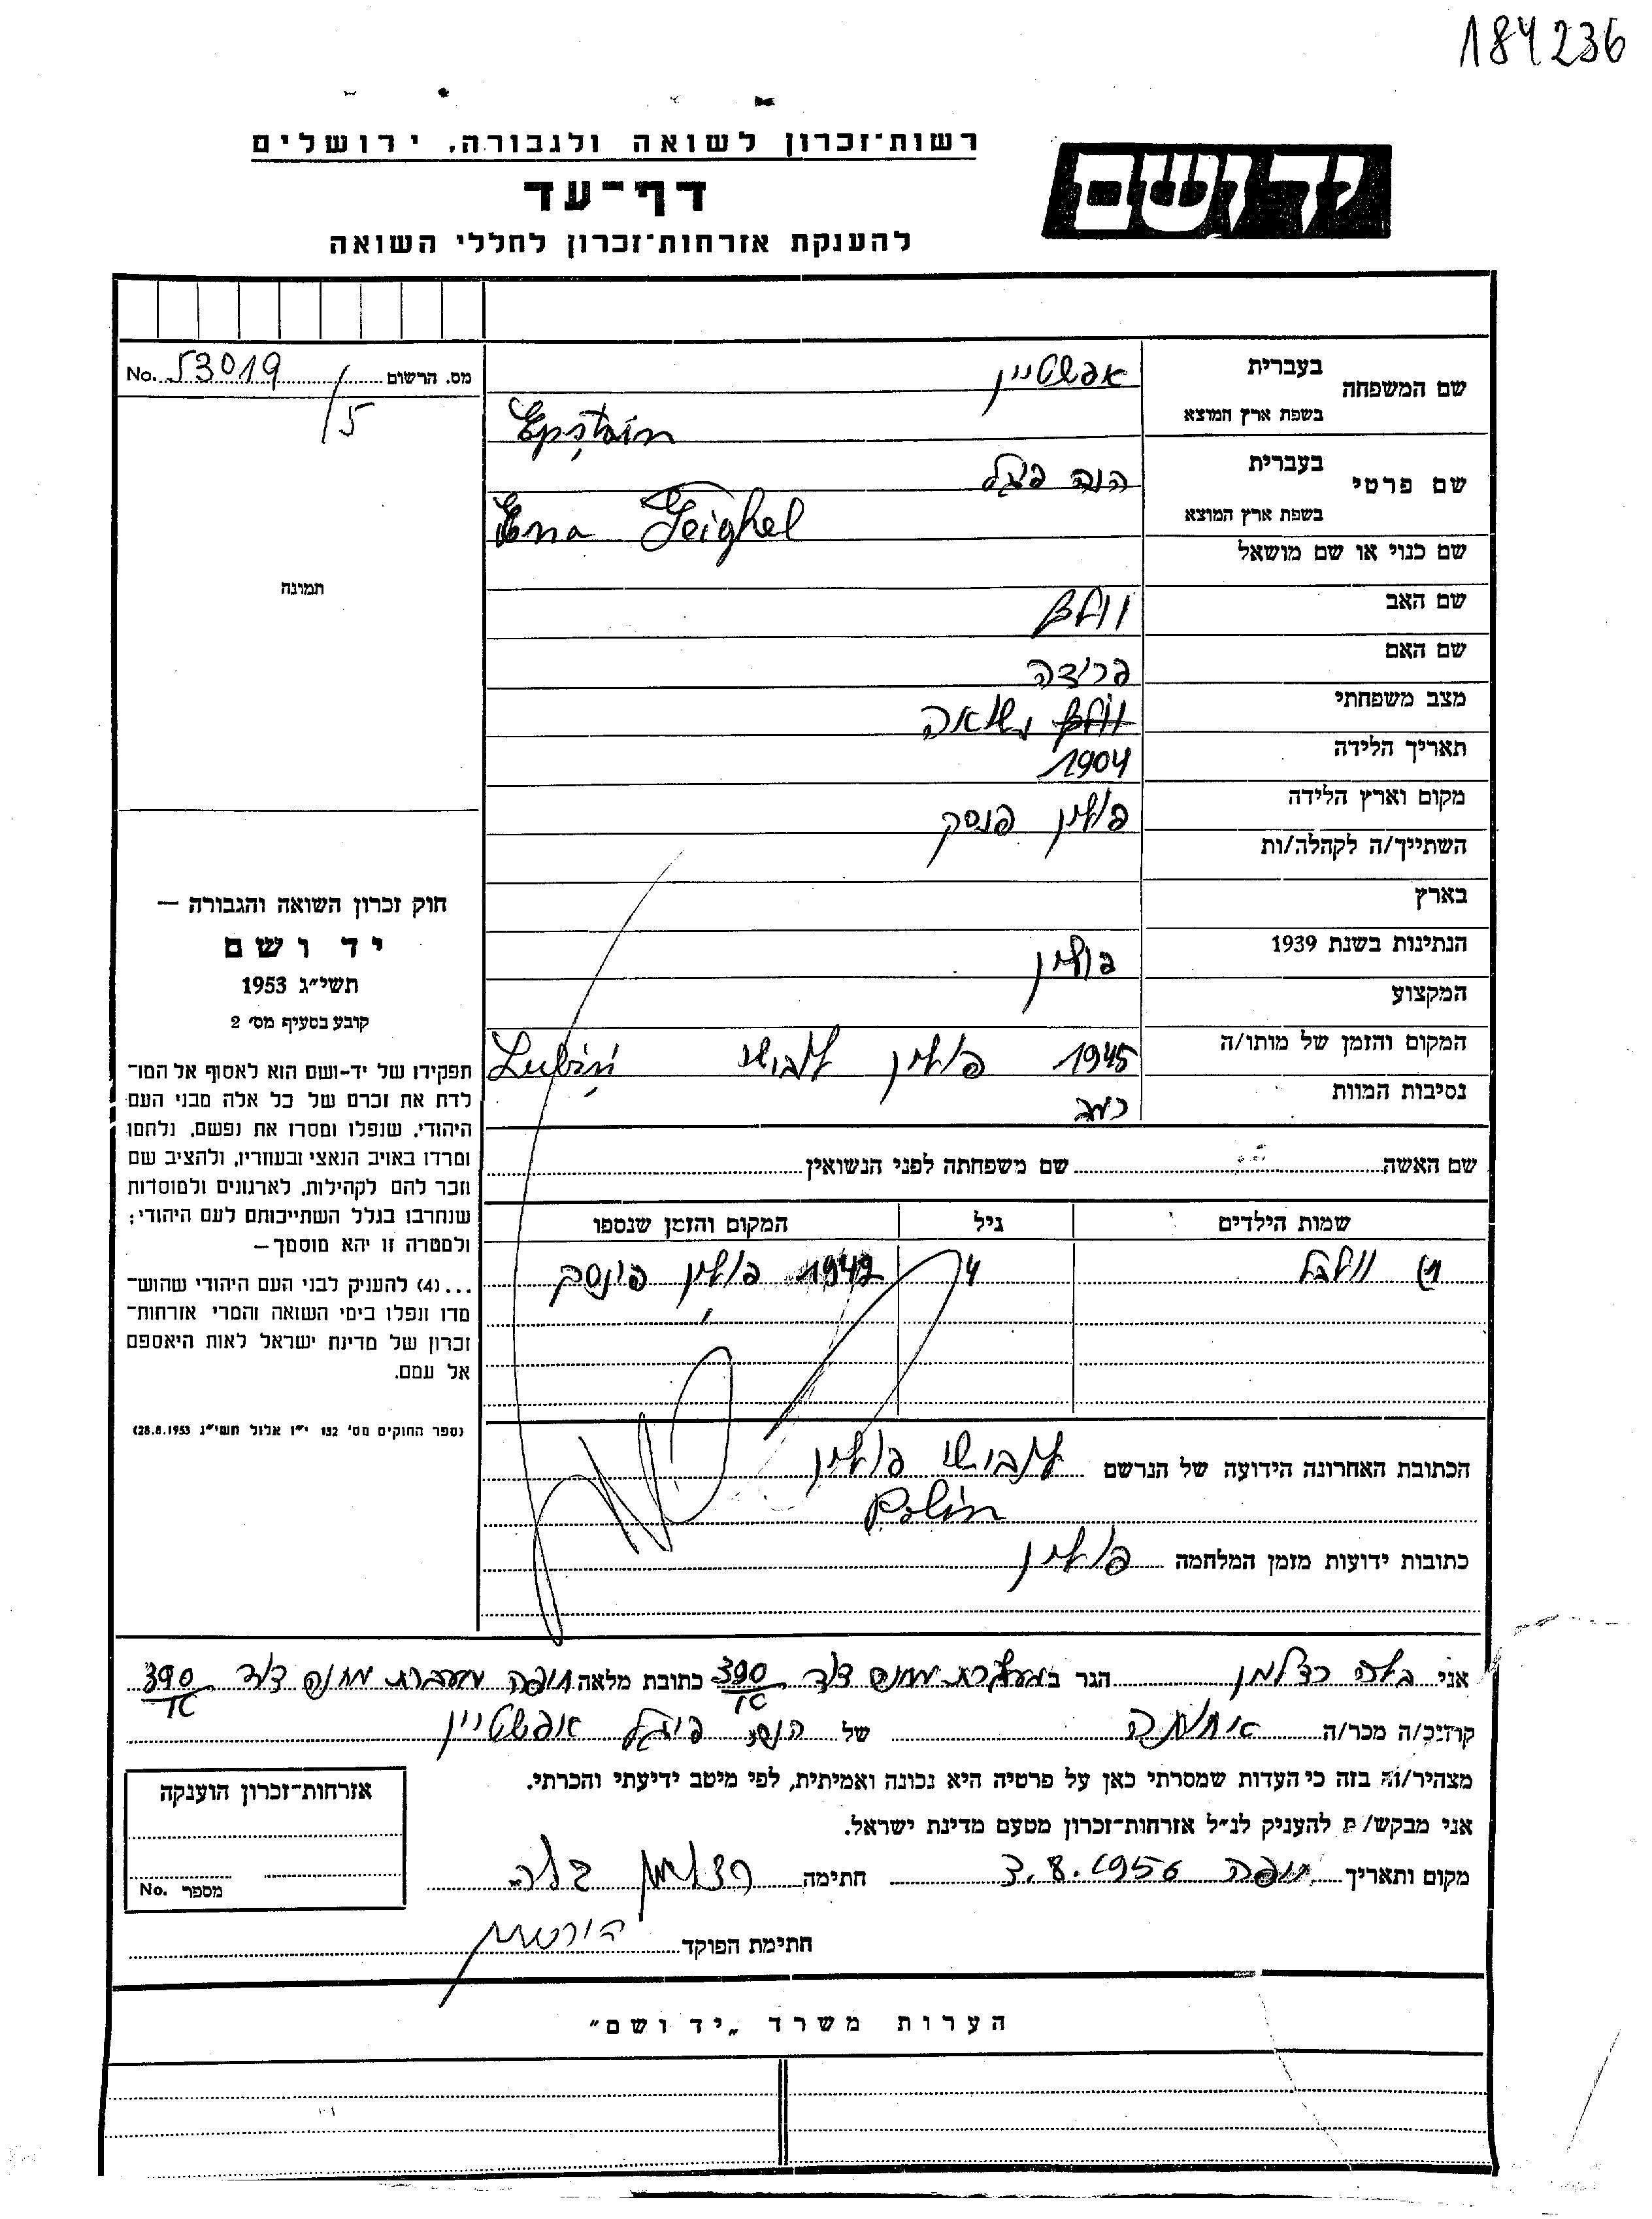 184236
רשות־זכרון לשואה ולגבורה, ירושלים
יד ושם
דף־עד
להענקת אזרחות־זכרון לחללי השואה
מס. הרשום 53019 No.
/5
תמונה
שם המשפחה
בעברית
אפשטיין
בשפת ארץ המוצא
Epstain
שם פרטי
בעברית
הנה פיגל
בשפת ארץ המוצא
Ena Feighel
שם כנוי או שם מושאל
שם האב
וולף
שם האם
פריצה
מצב משפחתי
נשואה
תאריך הלידה
1904
מקום וארץ הלידה
פולין פנסק
השתייך/ה לקהלה/ות
בארץ
הנתינות בשנת 1939
פולין
המקצוע
המקום והזמן של מותו/ה
1945 פולין
נסיבות המוות
רעב
שם האשה
שם משפחתה לפני הנשואין
שמות הילדים
גיל
המקום והזמן שנספו
1)
4
1942 פולין פינסק
הכתובת האחרונה הידועה של הנרשם
פולין
Polin
כתובות ידועות מזמן המלחמה פולין
חוק זכרון השואה והגבורה —
יד ושם
תשי״ג 1953
קובע בסעיף מס׳ 2
תפקידו של יד-ושם הוא לאסוף אל המו־
לדת את זכרם של כל אלה מבני העם
היהודי, שנפלו ומסרו את נפשם, נלחמו
ומרדו באויב הנאצי ובעוזריו, ולהציב שם
וזכר להם לקהילות, לארגונים ולמוסדות
שנחרבו בגלל השתייכותם לעם היהודי;
ולמטרה זו יהא מוסמך—
...(4) להעניק לבני העם היהודי שהוש־
מדו ונפלו בימי השואה והמרי אזרחות־
זכרון של מדינת ישראל לאות היאספם
אל עמם.
(ספר החוקים מס׳ 132 י״ז אלול תשי״ג 28.8.1953)
אני בלה כצלמן הגר ב מעברת מחנה דוד 390 כתובת מלאה חיפה מעברת מחנה דוד 390
קרוב/ה מכר/ה של הנה פיגל אפשטיין
מצהיר/ה בזה כי העדות שמסרתי כאן על פרטיה היא נכונה ואמיתית, לפי מיטב ידיעתי והכרתי.
אני מבקש/ת להעניק לנ״ל אזרחות־זכרון מטעם מדינת ישראל.
מקום ותאריך חיפה 3.8.1956 חתימה בלה
חתימת הפוקד
אזרחות־זכרון הוענקה
מספר No.
הערות משרד „יד ושם״